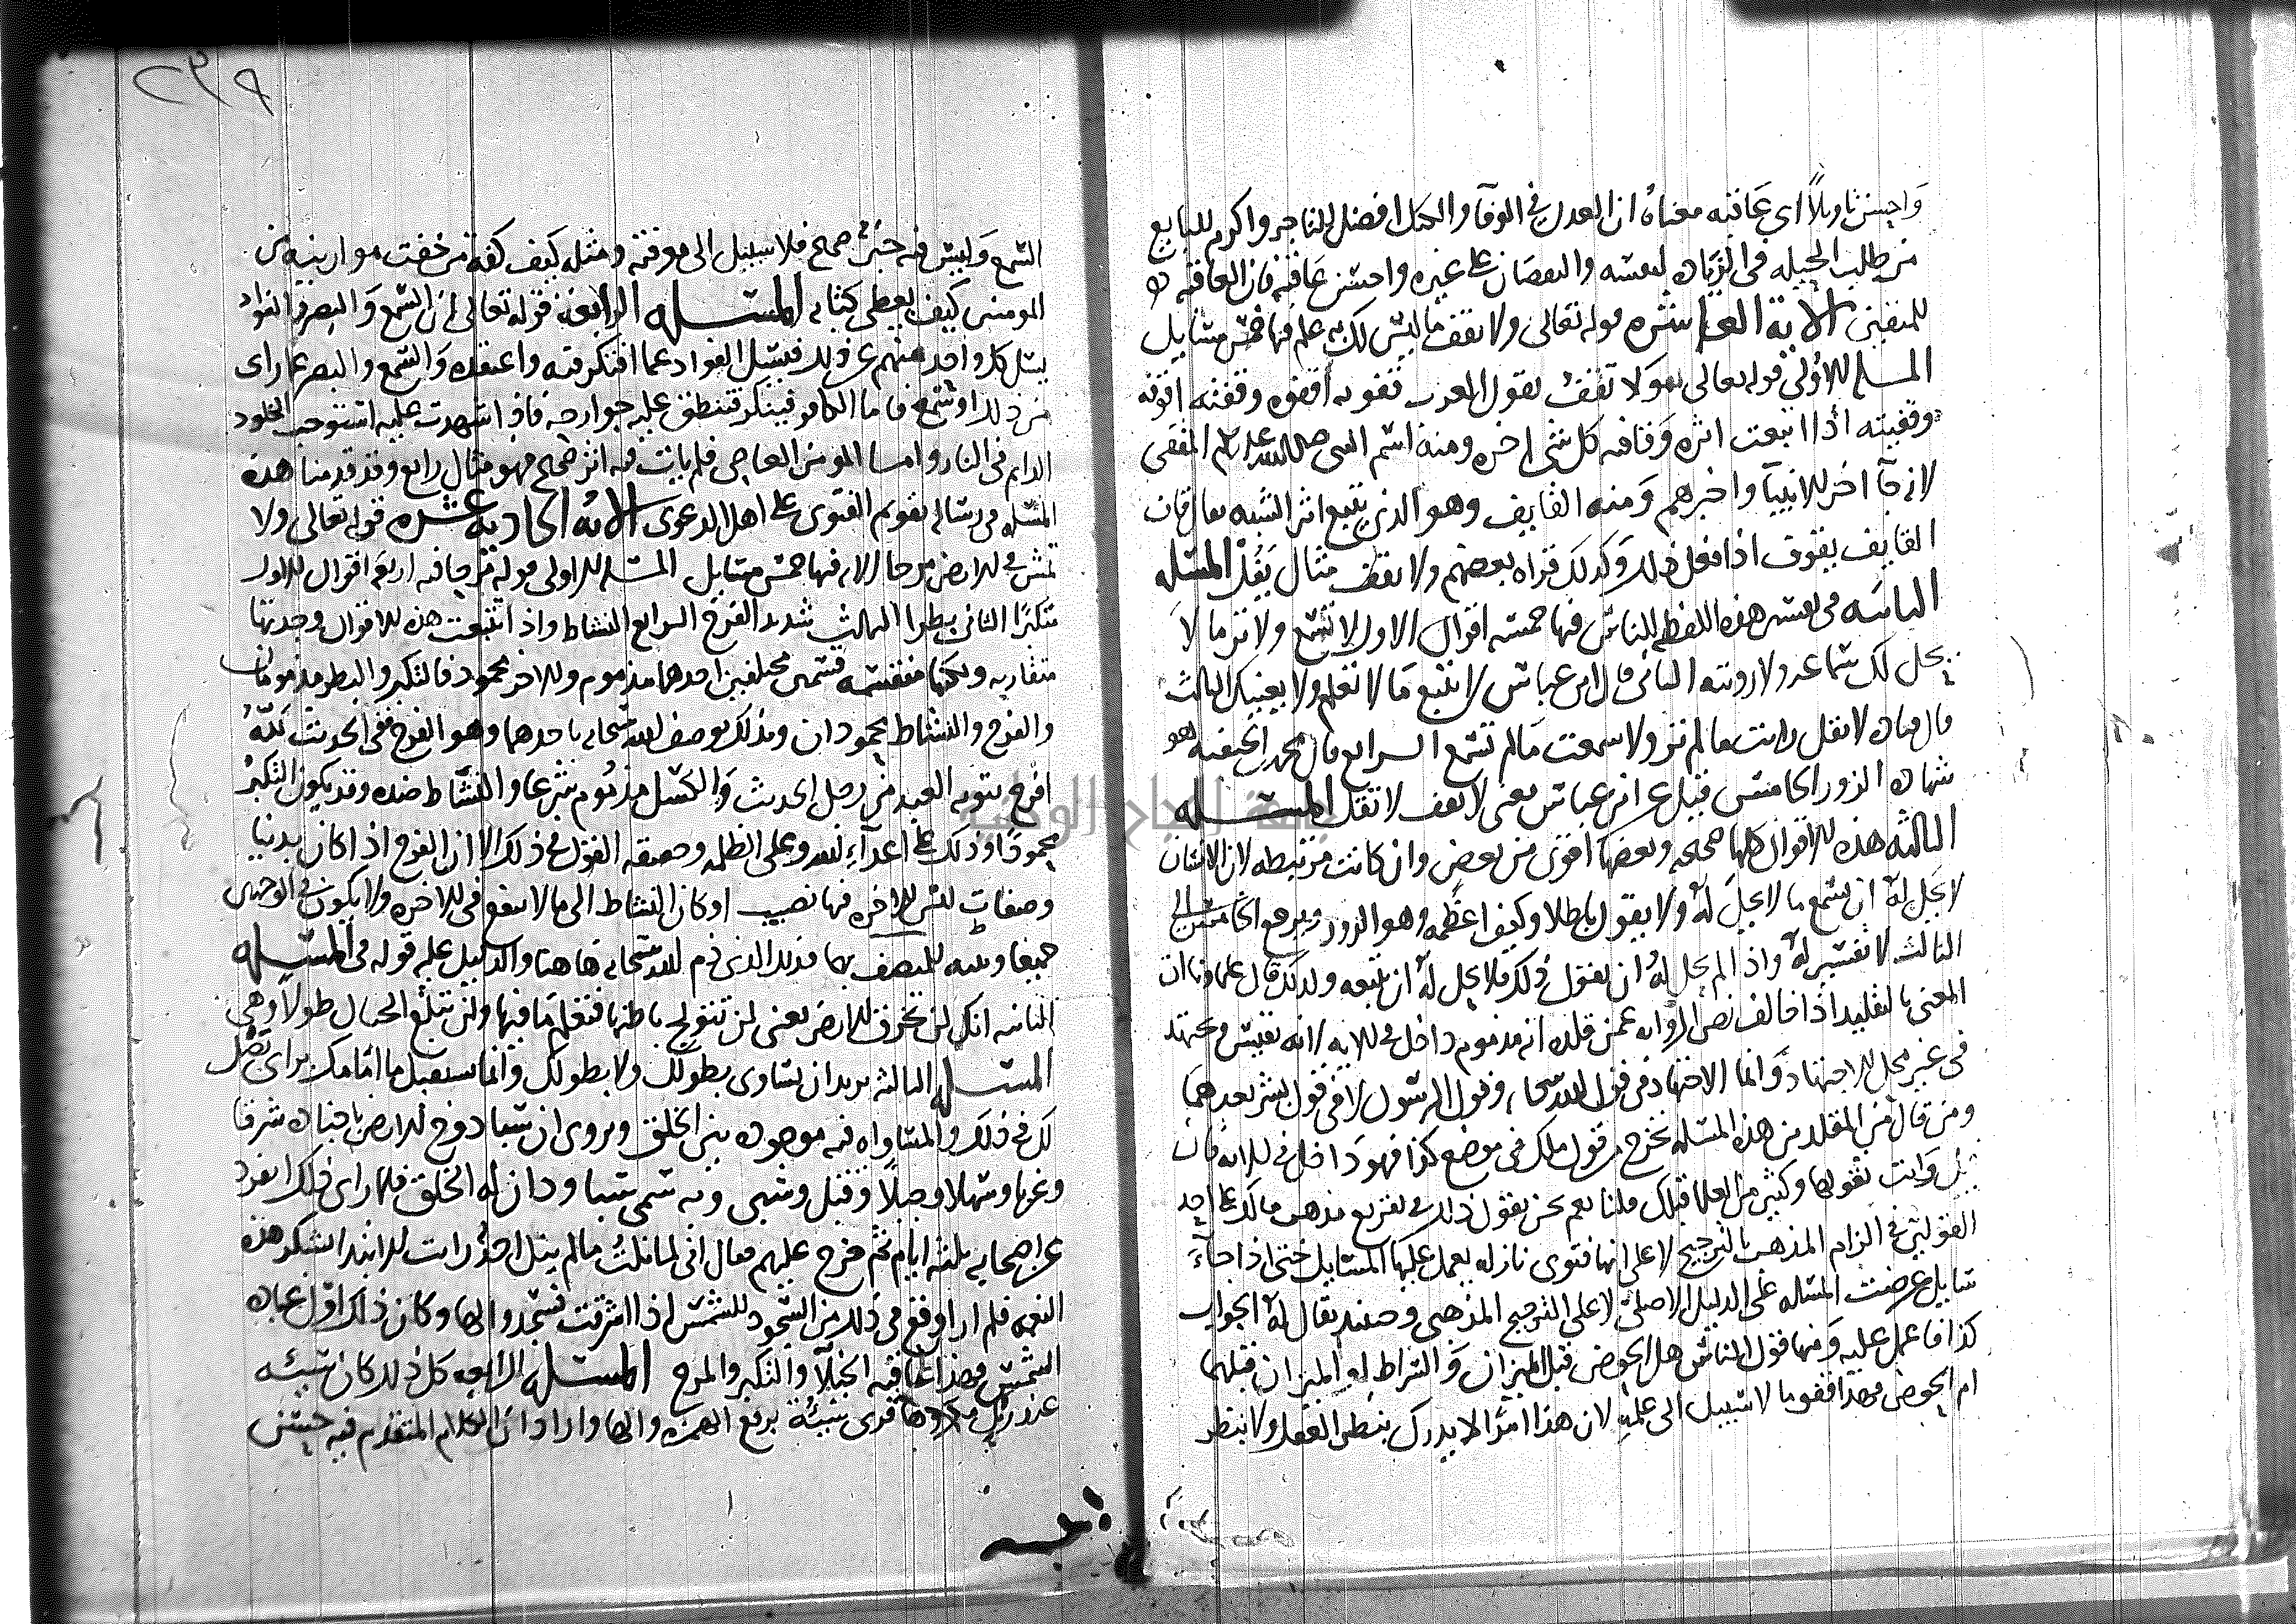 واحسن تاويلا اي عاقبه معناه ان العدل في الوفآ والكيل افضل للتاجر واكرم للبايع
من طلب الحيله في الزياده لنفسه والنقصان على غيره واحسن عاقبه فان العاقبه
للمتقين الايه العاشره قوله تعالى ولا تقف ما ليس لك به علم فيها خمس مسايل
المسله الاولى قوله تعالى ولا تقف يقول العرب قفوته اقفوه وقفته اقوفه
وقفيته اذا اتبعت اثره وقافيه كل شي اخره ومنه اسم النبي صلى الله عليه وسلم المقفى
لانه جآ اخر الانبيآ واخرهم ومنه القايف وهو الذي يتبع اثر الشبه يقال قاف
القايف يقوف اذا فعل ذلك وكذلك قراه بعضهم ولا تقف مثال تقل المسله
الثانيه في تفسير هذه اللفظه للناس فيها خمسه اقوال الاول لا تسمع ولا تر ما لا
يحل لك سماعه ولا رويته الثاني قال ابن عباس لا تتبع ما لا تعلم ولا يعنيك الثالث
قال قتاده لا تقل رايت ما لم تر ولا سمعت ما لم تسمع الرابع قال محمد بن الحنفيه هو
شهاده الزور الخامس قيل عن ابن عباس معنى لا تقف لا تقل المسله
الثالثه هذه الاقوال كلها صحيحه وبعضها اقوى من بعض وان كانت مرتبطه لان الانسان
لا يحل له ان يسمع ما لا يحل له ولا يقول باطلا وكيف اعظمه وهو الزور ويرجع الخامس الى
الثالث لانه تفسير له واذا لم يحل له ان يقول ذلك فلا يحل له ان يتبعه ولذلك قال علماونا ان
المفتي بالتقليد اذا خالف نص الروايه عمن قلده انه مذموم داخل في الايه لانه يقيس ويجتهد
في غير محل الاجتهاد وانما الاجتهاد في قول الله سبحانه وقول الرسول لا في قول بشر بعدهما
ومن قال من المقلدين هذه المسله تخرج من قول ملك في موضع كذا فهو داخل في الايه فان
قيل وانت تقولها وكثير من العلما قبلك قلنا نعم نحن نقول ذلك في تفريع مذهب مالك على احد
القولين في التزام المذهب بالتخريج لا على انها فتوى نازله يعمل عليها المسايل حتى اذا جآء
سايل عرضت المسله على الدليل الاصلي لا على التخريج المذهبي وحينيذ يقال له الجواب
كذا فاعمل عليه ومنها قول الناس هل الحوض قبل الميزان والصراط او الميزان قبلهما
ام الحوض فهذا قفو ما لا سبيل الى علمه لان هذا امرا لا يدرك بنظر العقل ولا بنظر
٢٣٩
السمع وليس فيه خبر صحيح فلا سبيل الى معرفته ومثله كيف كفه من خفت موازينه من
المومنين كيف يعطى كتابه المسله الرابعه قوله تعالى ان السمع والبصر والفواد
يسل كل واحد منهم عن ذلك فيسل الفواد عما افتكر فيه واعتقده والسمع والبصر عما راى
من ذلك او سمع فاما الكافر فينكر فتنطق عليه جوارحه فاذا شهدت عليه استوجب الخلود
الدايم في النار واما المومن العاصي فلم يات فيه اثر صحيح فهو مثال رابع وقد قدمنا هذه
المسله في رساله تقويم الفتوى على اهل الدعوى الايه الحاديه عشره قوله تعالى ولا
تمش في الارض مرحا الايه فيها خمس مسايل المسله الاولى قوله مرحا فيه اربعه اقوال الاول
متكبرا الثاني بطرا الثالث شديد الفرح الرابع النشاط واذا تتبعت هذه الاقوال وجدتها
متقاربه ولكنها منقسمه قسمين مختلفين احدهما مذموم والاخر محمود فالتكبر والبطر مذمومان
والفرح والنشاط محمودان وبذلك يوصف الله سبحانه باحدهما وهو الفرح ففي الحديث لله
افرح بتوبه العبد من رجل الحديث والكسل مذموم شرعا والنشاط ضده وقد يكون التكبر
محمودا وذلك على اعدآء الله وعلى الظلمه وحقيقه القول في ذلك الا ان الفرح اذا كان بدنيا
وصفات ليس للاخره فيها نصيب او كان النشاط الى ما لا ينفع في الاخره ولا يكون في الوجهين
جميعا ونيه للمتصف بها فذلك الذي ذم الله سبحانه هاهنا والدليل عليه قوله في المسله
الثانيه انك لن تخرق الارض يعني لن تتولج باطنها فتعلم ما فيها ولن تبلغ الجبال طولا وهي
المسله الثالثه يريد ان تساوي بطولك ولا بطولك وانما يستقبل ما امامك براي يصل
لك في ذلك والمساواه فيه موجوده بين الخلق ويروى ان سبا دوخ الارض باجناده شرقا
وغربا وسهلا وجبلا وقتل وسبى وبه سمي سبا ودان له الخلق فلما راى ذلك انفرد
عن اصحابه ثلثه ايام ثم خرج عليهم فقال اني لما نلت ما لم ينل احد رايت الابتدا بشكر هذه
النعمه فلم ار اوقع في ذلك من السجود للشمس اذا اشرقت فسجدوا لها وكان ذلك اول عباده
الشمس فهذا عاقبه الخيلآ والتكبر والمرح المسله الرابعه كل ذلك كان سيئه
عند ربك مكروها قرى سيئه برفع الهمزه والها وارادا ان الكلام المتقدم فيه حسن